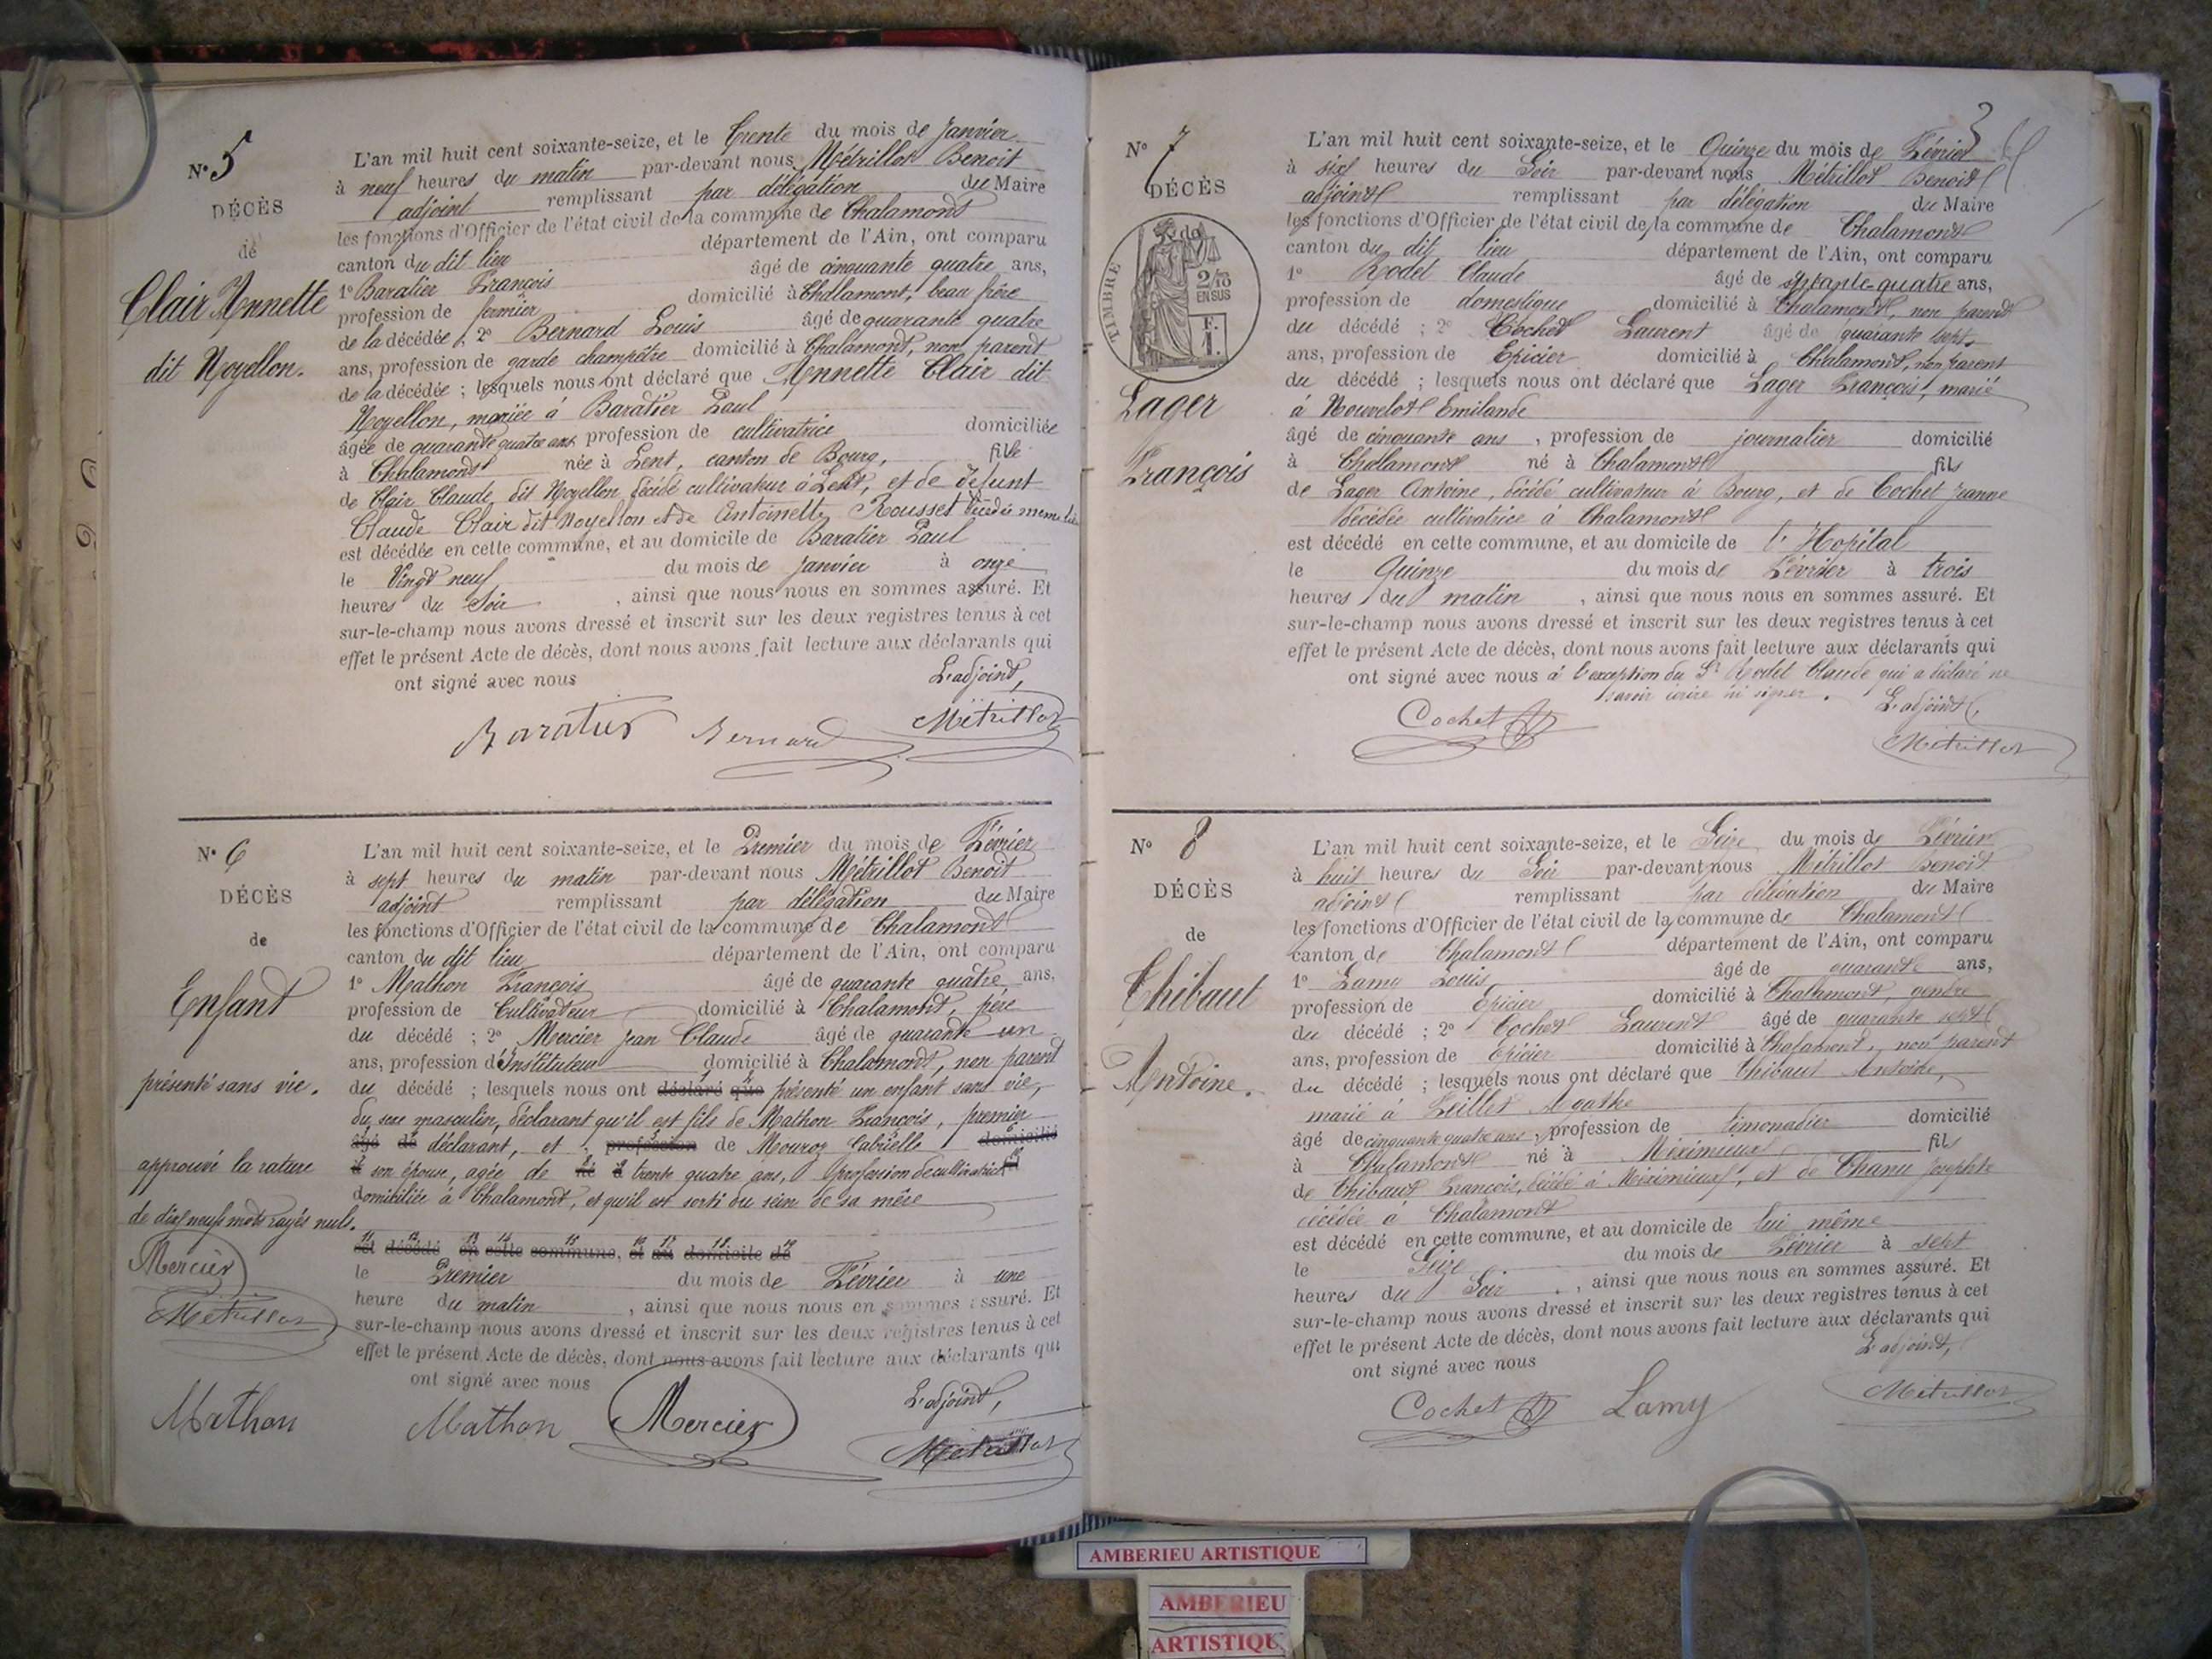 N° 5
DÉCÈS
de
Clair Annette
dit Noyellon.
L'an mil huit cent soixante-seize, et le Trente du mois de Janvier
à neuf heures du matin par-devant nous Métrillot Benoit
adjoint remplissant par délégation du Maire
les fonctions d'Officier de l'état civil de la commune de Chalamont
canton du dit lieu département de l'Ain, ont comparu
1° Baratier François âgé de cinquante quatre ans,
profession de fermier domicilié à Chalamont, beau frère
de la décédée ; 2° Bernard Louis âgé de quarante quatre
ans, profession de garde champêtre domicilié à Chalamont, non parent
de la décédée ; lesquels nous ont déclaré que Annette Clair dit
Noyellon, mariée à Baratier Paul
âgée de quarante quatre ans profession de cultivatrice domiciliée
à Chalamont née à Lent, canton de Bourg, fille
de Clair Claude dit Noyellon décédé cultivateur à Lent, et de défunt
Claude Clair dit Noyellon et de Antoinette Rousset décédée même lieu
est décédée en cette commune, et au domicile de Baratier Paul
le Vingt neuf du mois de Janvier à onze
heures du Soir , ainsi que nous nous en sommes assuré. Et
sur-le-champ nous avons dressé et inscrit sur les deux registres tenus à cet
effet le présent Acte de décès, dont nous avons fait lecture aux déclarants qui
ont signé avec nous L'adjoint,
Baratier Bernard Métrillot
N° 6
DÉCÈS
de
Enfant
présenté sans vie.
approuvé la rature
de dix neufs mots rayés nuls.
Mercier
Métrillot
Mathon
L'an mil huit cent soixante-seize, et le Premier du mois de Février
à sept heures du matin par-devant nous Métrillot Benoit
adjoint remplissant par délégation du Maire
les fonctions d'Officier de l'état civil de la commune de Chalamont
canton du dit lieu département de l'Ain, ont comparu
1° Mathon François âgé de quarante quatre ans,
profession de Cultivateur domicilié à Chalamont, père
du décédé ; 2° Mercier Jean Claude âgé de quarante un
ans, profession d'Instituteur domicilié à Chalamont, non parent
du décédé ; lesquels nous ont déclaré que présenté un enfant sans vie,
du sexe masculin, déclarant qu'il est fils de Mathon François, premier
âgé de déclarant, et , profession de Mouroz Cabrielle domicilié
à son épouse, agée de né à trente quatre ans, profession de cultivatrice
domiciliée à Chalamont, et qu'il est sorti du sein de sa mère
est décédé en cette commune, et au domicile de
le Premier du mois de Février à une
heure du matin , ainsi que nous nous en sommes assuré. Et
sur-le-champ nous avons dressé et inscrit sur les deux registres tenus à cet
effet le présent Acte de décès, dont nous avons fait lecture aux déclarants qui
ont signé avec nous L'adjoint,
Mathon Mercier Métrillot
3
N° 7
DÉCÈS
de
TIMBRE
2/10
EN SUS
F.
1.
Lager
François
L'an mil huit cent soixante-seize, et le Quinze du mois de Février
à six heures du Soir par-devant nous Métrillot Benoit
adjoint remplissant par délégation du Maire
les fonctions d'Officier de l'état civil de la commune de Chalamont
canton du dit lieu département de l'Ain, ont comparu
1° Rodet Claude âgé de quatre ans,
profession de domestique domicilié à Chalamont, non parent
du décédé ; 2° Cochet Laurent âgé de quarante sept
ans, profession de Epicier domicilié à Chalamont, non parent
du décédé ; lesquels nous ont déclaré que Lager François, marié
à Nouvelot Emilande
âgé de cinquante ans , profession de journalier domicilié
à Chalamont né à Chalamont fils
de Lager Antoine, décédé cultivateur à Bourg, et de Cochet Jeanne
décédée cultivatrice à Chalamont
est décédé en cette commune, et au domicile de l'Hopital
le Quinze du mois de Février à trois
heures du matin , ainsi que nous nous en sommes assuré. Et
sur-le-champ nous avons dressé et inscrit sur les deux registres tenus à cet
effet le présent Acte de décès, dont nous avons fait lecture aux déclarants qui
ont signé avec nous à l'exception du Sr Rodet Claude qui a déclaré ne
savoir écrire ni signer. L'adjoint,
Cochet Métrillot
N° 8
DÉCÈS
de
Thibaut
Antoine.
L'an mil huit cent soixante-seize, et le Seize du mois de Février
à huit heures du Soir par-devant nous Métrillot Benoit
adjoint remplissant par délégation du Maire
les fonctions d'Officier de l'état civil de la commune de Chalamont
canton de Chalamont département de l'Ain, ont comparu
1° Lamy Louis âgé de quarante ans,
profession de Epicier domicilié à Chalamont, gendre
du décédé ; 2° Cochet Laurent âgé de quarante sept
ans, profession de Epicier domicilié à Chalamont, non parent
du décédé ; lesquels nous ont déclaré que Thibaut Antoine,
marié à Agathe
âgé de cinquante quatre ans, profession de limonadier domicilié
à Chalamont né à Méximieux fils
de Thibaut François, décédé à Méximieux, et de Chanu Josephte
décédée à Chalamont
est décédé en cette commune, et au domicile de lui même
le Seize du mois de Février à sept
heures du Soir , ainsi que nous nous en sommes assuré. Et
sur-le-champ nous avons dressé et inscrit sur les deux registres tenus à cet
effet le présent Acte de décès, dont nous avons fait lecture aux déclarants qui
ont signé avec nous L'adjoint,
Cochet Lamy Métrillot
AMBERIEU ARTISTIQUE
AMBERIEU
ARTISTIQUE